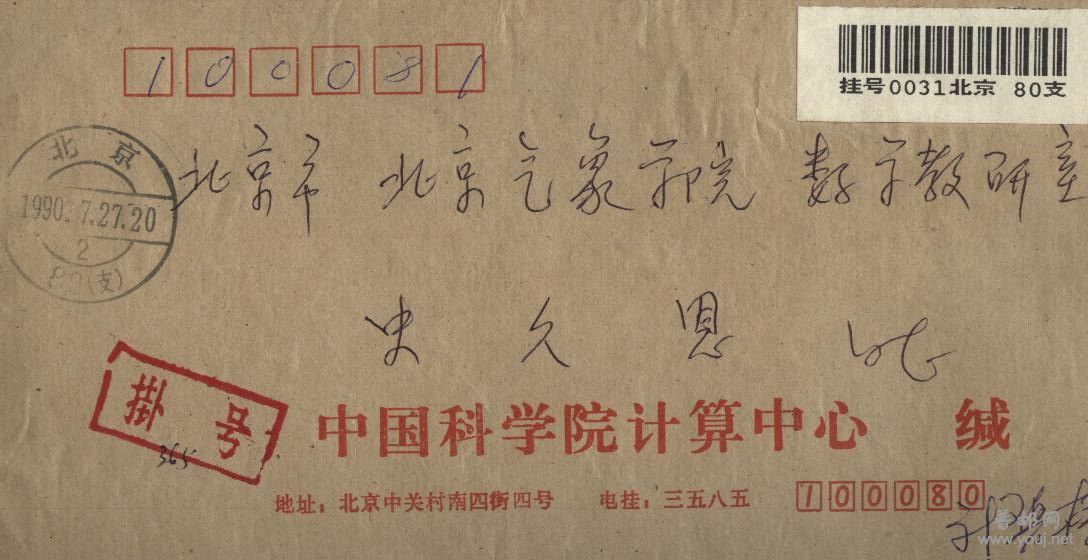 挂号0031北京 80支
100081
北京市 北京气象学院 数学教研室
北京
1990.7.27.20
2
80(支)
史久恩
掛号
365
中国科学院计算中心 缄
地址:北京中关村南四街四号 电挂:三五八五 100080
www.youj.net